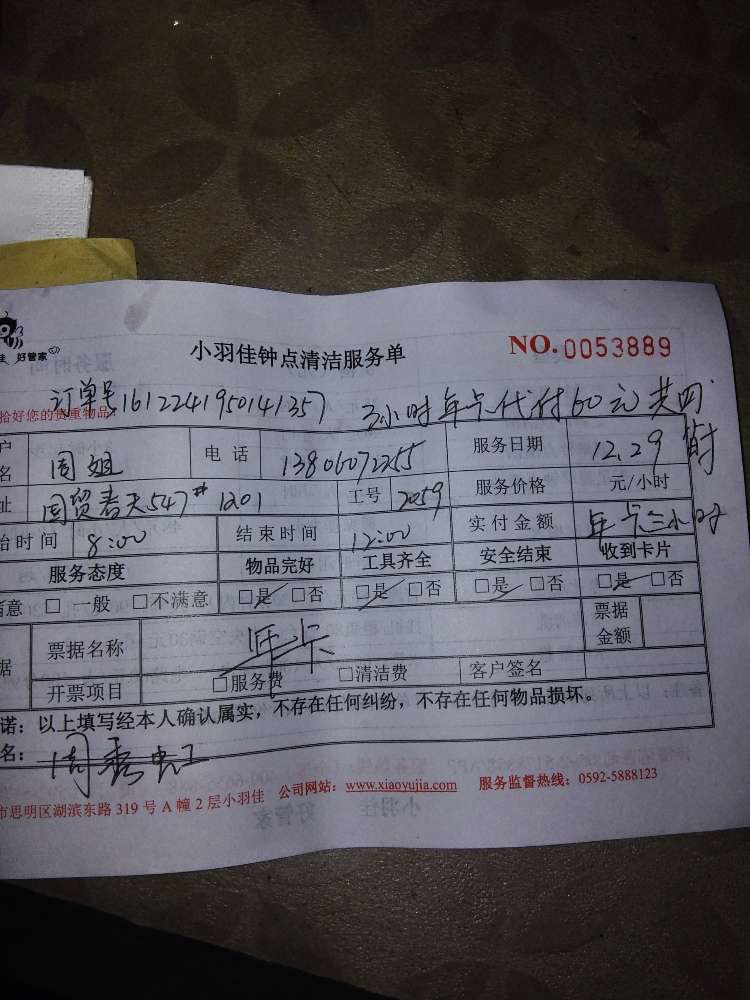 佳 好管家
小羽佳钟点清洁服务单 NO.0053889
订单号1612241950141357 3小时年卡代付60元共四时
拾好您的贵重物品
户名 周姐 电话 13806072255 服务日期 12.29
址 国贸春天547#1201 工号 2059 服务价格 元/小时
始时间 8:00 结束时间 12:00 实付金额 年卡三小时
服务态度 物品完好 工具齐全 安全结束 收到卡片
满意 □一般 □不满意 □是 □否 □是 □否 □是 □否 □是 □否
据 票据名称 年卡 票据金额
开票项目 □服务费 □清洁费 客户签名
诺：以上填写经本人确认属实，不存在任何纠纷，不存在任何物品损坏。
名：周秀虹
市思明区湖滨东路 319 号 A 幢 2 层小羽佳 公司网站：www.xiaoyujia.com 服务监督热线：0592-5888123